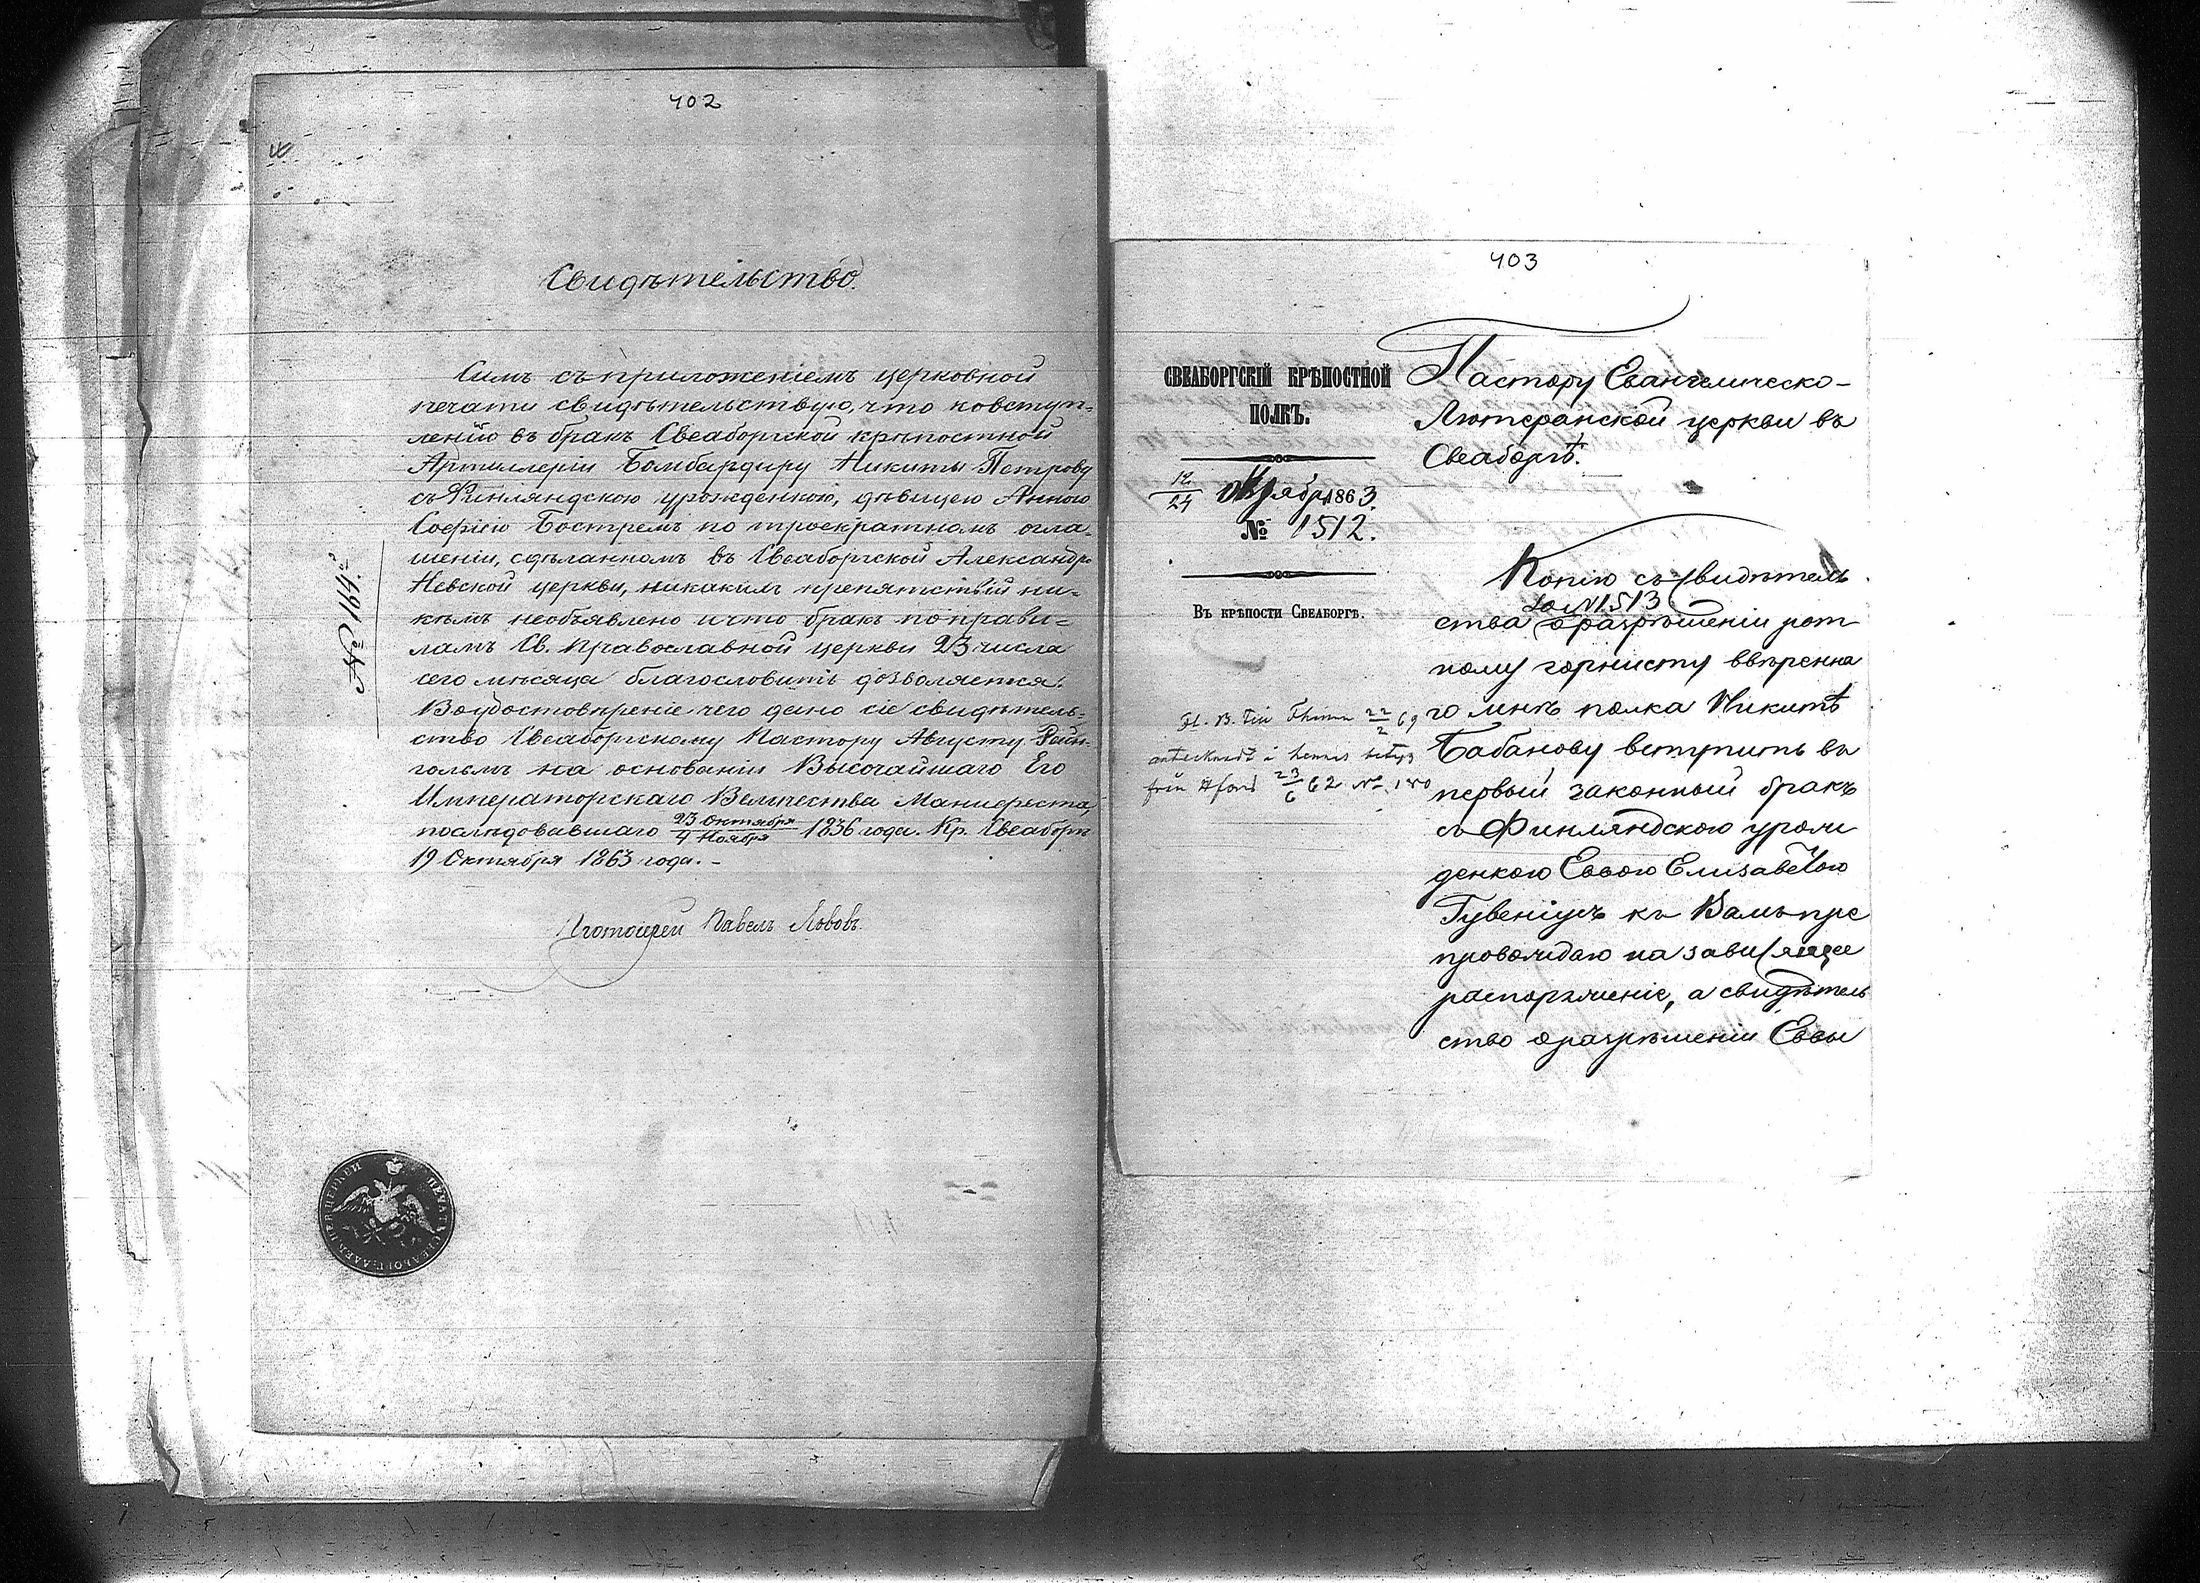 402
Свидѣтельство.
Симъ съ приложеніемъ церковной
печати свидѣтельствую, что ковступ-
ленію въ бракъ Свеаборгской крѣпостной
Артиллеріи Бомбардиру Никиты Петрову
съ Финляндскою урожденкою, дѣвицею Анною
Софіею Бостремъ по троекратномъ огла-
шеніи, сдѣланномъ въ Свеаборгской Александро
Невской церкви, никакихъ препятствій ни-
кѣмъ необъявлено и что бракъ по прави-
ламъ Св. Православной церкви 23 числа
сего мѣсяца благословить дозволяется.
Воудостовѣреніе чего дано сіе свидѣтель-
ство Свеаборгскому Пастору Августу Рейн-
гольмъ на основаніи Высочайшаго Его
Императорскаго Величества Манифеста,
послѣдовавшаго 23 Октября / 4 Ноября 1836 года. Кр. Свеаборгъ
19 Октября 1863 года.-
Протоіерей Павелъ Львовъ.
№ 164.
ПЕЧАТЬ СВЕАБОРГ: АЛЕК: НЕВ: ЦЕРКВИ
403
СВЕАБОРГСКІЙ КРѢПОСТНОЙ
ПОЛКЪ.
12/24 Октября 1863.
№ 1512.
ВЪ КРѢПОСТИ СВЕАБОРГѢ.
22/2 69
antecknadt i hennes betyg
från 23/6 62 No 180
Пастору Евангелическо-
Лютеранской церкви въ
Свеаборгѣ.
Копію съ свидѣтель
за №1513
ства о разрѣшеніи рот
ному горнисту ввѣренна
го мнѣ полка Никитѣ
Бабанову вступить въ
первый законный бракъ
съ Финляндскою урож
денкою Еввою Елизаветою
Гувеніусъ къ Вамъ пре
провождаю на зависящее
распоряженіе, а свидѣтель
ство о разрѣшеніи Еввы